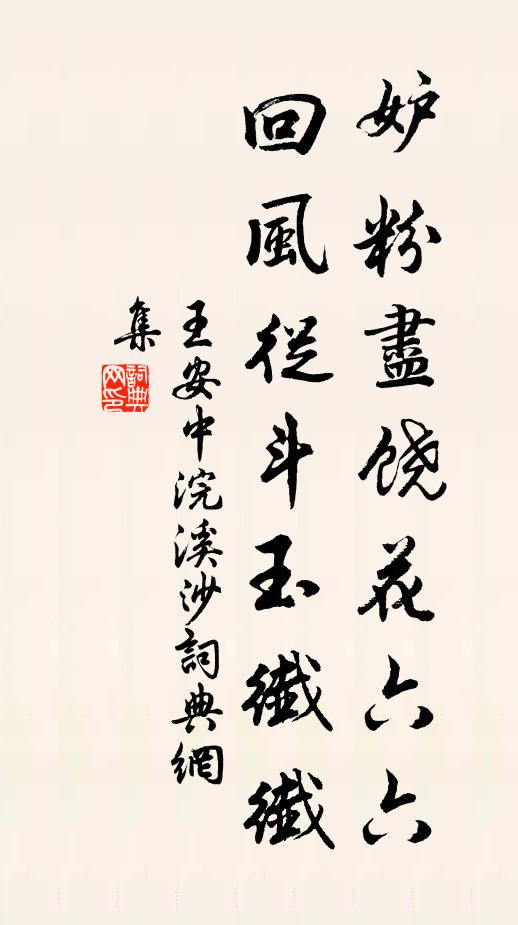 妒粉盡饒花六六
回風從斗玉纖纖
王安中浣溪沙詞典網
集
詞典
网印